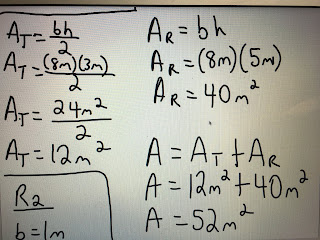 A_T = bh/2
A_T = (8m)(3m)/2
A_T = 24m²/2
A_T = 12m²
R2
b = 1m
A_R = bh
A_R = (8m)(5m)
A_R = 40m²
A = A_T + A_R
A = 12m² + 40m²
A = 52m²